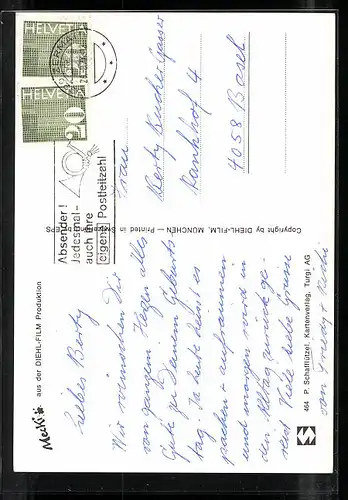 Mecki
aus der DIEHL-FILM Produktion
Liebes Berty
Wir wünschen Dir
von ganzem Herzen alles
Gute zu Deinem Geburts
tag! Ja heute heisst es
packen + aufräumen
und morgen wird in
den Alltag zurück ge-
reist. Viele liebe Grüsse
464 P. Schafflützel, Kartenverlag, Turgi AG
Copyright by DIEHL-FILM, MÜNCHEN — Printed in Switzerland by
HELVETIA
HELVETIA
20
Absender!
Jedesmal
auch Ihre
eigene Postleitzahl
Frau
Berty Kucher-Gasser
Rankhof 4
4058 Basel